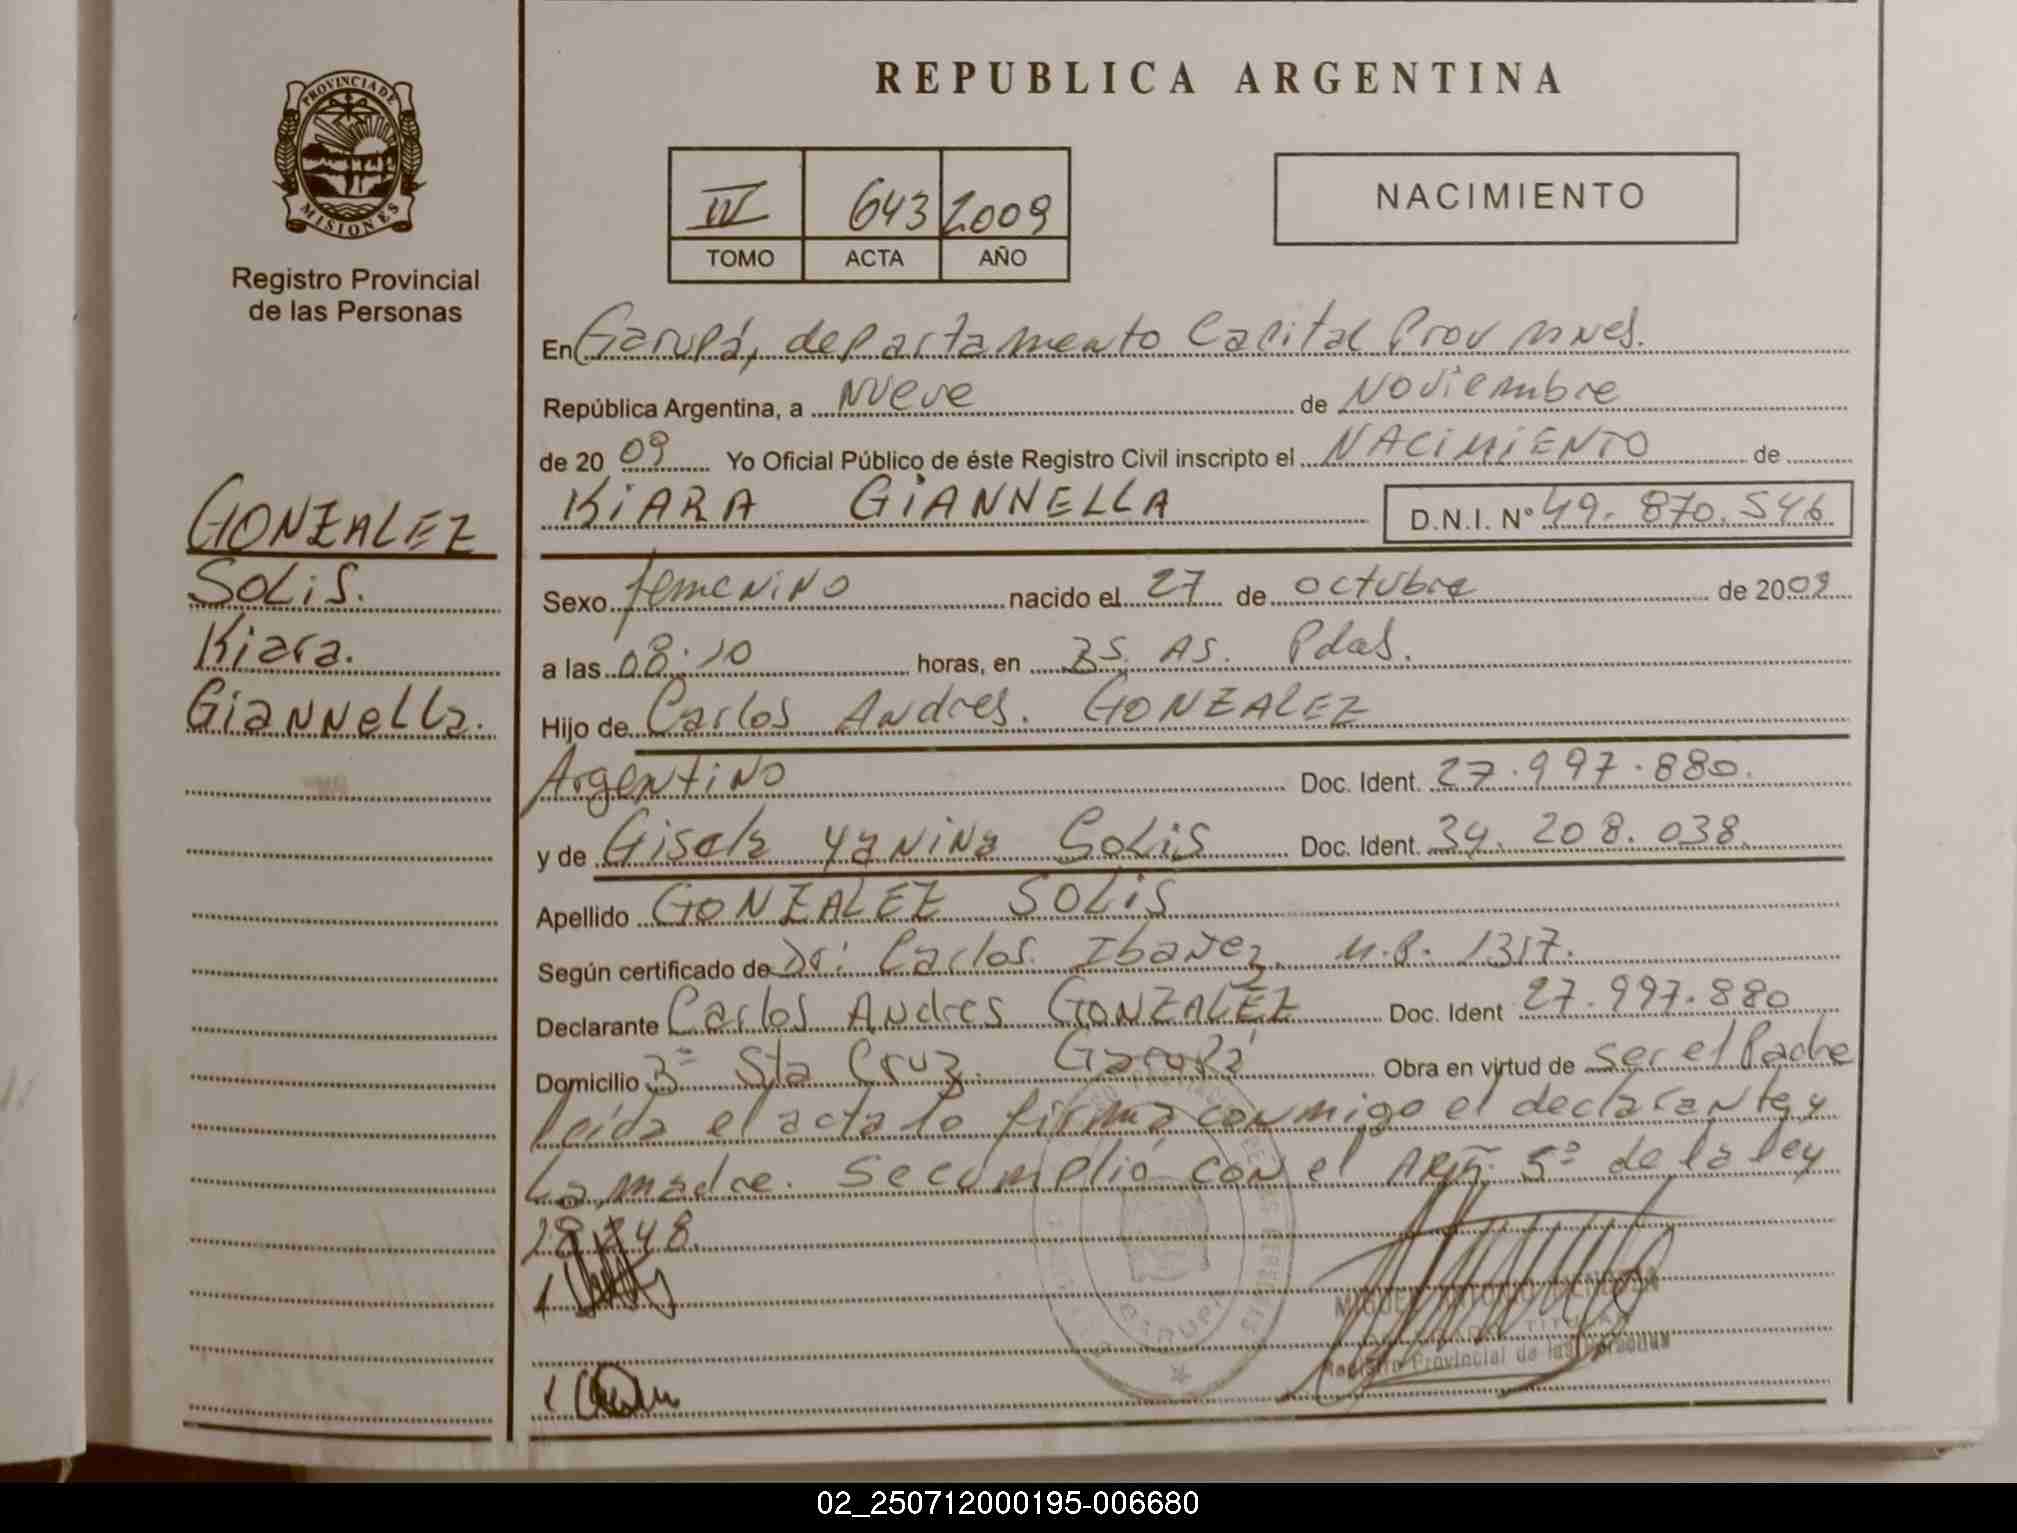 REPUBLICA ARGENTINA
PROVINCIA DE
MISIONES
Registro Provincial
de las Personas
IV 643 2009
TOMO ACTA AÑO
NACIMIENTO
En Garupá, departamento Capital Prov Mnes.
República Argentina, a Nueve de Noviembre
de 2009 Yo Oficial Público de éste Registro Civil inscripto el NACIMIENTO de
KIARA GIANNELLA D.N.I. N° 49.870.546
GONZALEZ
SOLIS.
Kiara.
Giannella.
Sexo femenino nacido el 27 de octubre de 2009
a las 08:10 horas, en Bs. As. Pdas.
Hijo de Carlos Andres. GONZALEZ
Argentino Doc. Ident. 27.997.880.
y de Gisela Yanina Solis Doc. Ident. 34.208.038.
Apellido GONZALEZ SOLIS
Según certificado de Dr: Carlos Ibañez. M.P. 1317.
Declarante Carlos Andres GONZALEZ Doc. Ident 27.997.880
Domicilio B° Sta Cruz. Garupá Obra en virtud de ser el Padre
leída el acta la firma conmigo el declarante y
La madre. Se cumplio con el 5° de la ley
248.
Registro Provincial de las Personas
02_250712000195-006680